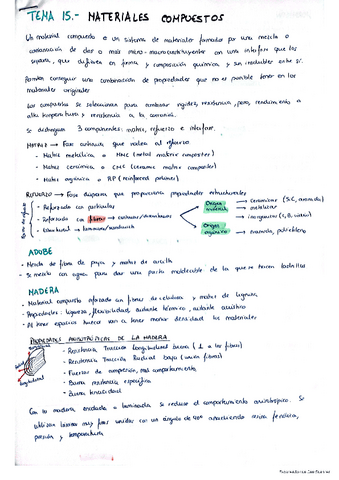 TEMA 15.- MATERIALES COMPUESTOS
Un material compuesto es un sistema de materiales formados por una mezcla o
combinación de dos o más micro-macroconstituyentes con una interfase que los
separa, que difieren en forma y composición química y son insolubles entre sí.
Permiten conseguir una combinación de propiedades que no es posible tener en los
materiales originales
Los composites se seleccionan para combinar rigidez, resistencia, peso, rendimiento a
alta temperatura y resistencia a la corrosión.
Se distinguen 3 componentes: matriz, refuerzo e interfase.
MATRIZ → Fase continua que rodea al refuerzo
- Matriz metálica = MMC (metal matrix composites)
- Matriz cerámica = CMC (ceramic matrix composites)
- Matriz orgánica = RP (reinforced plastics)
REFUERZO → Fase dispersa que proporciona propiedades estructurales
- Reforzado con partículas
- Reforzado con fibras → continuas/discontinuas
- Estructural → laminares/sandwich
Origen
→ cerámicas
→ metálicas
→ inorgánicas
Origen orgánico
→ aramida, polietileno
ADOBE
- Mezcla de fibra de paja y matriz de arcilla
- Se mezcla con agua para dar una pasta moldeable de la que se hacen ladrillos
MADERA
- Material compuesto reforzado con fibras de celulosa y matriz de lignina
- Propiedades: ligereza, flexibilidad, aislante térmico, aislante acústico
- Al tener espacios huecos van a tener menor densidad los materiales
PROPIEDADES ANISOTRÓPICAS DE LA MADERA
- Resistencia Tracción Longitudinal buena ( a las fibras)
- Resistencia Tracción Radial baja (unen fibras)
- Fuerzas de compresión, mal comportamiento
- Buena resistencia específica
- Buena tenacidad
Con la madera encolada o laminada se reduce el comportamiento anisotrópico. Se
utilizan láminas muy finas unidas con un ángulo de 90° añadiendo resina fenólica,
presión y temperatura